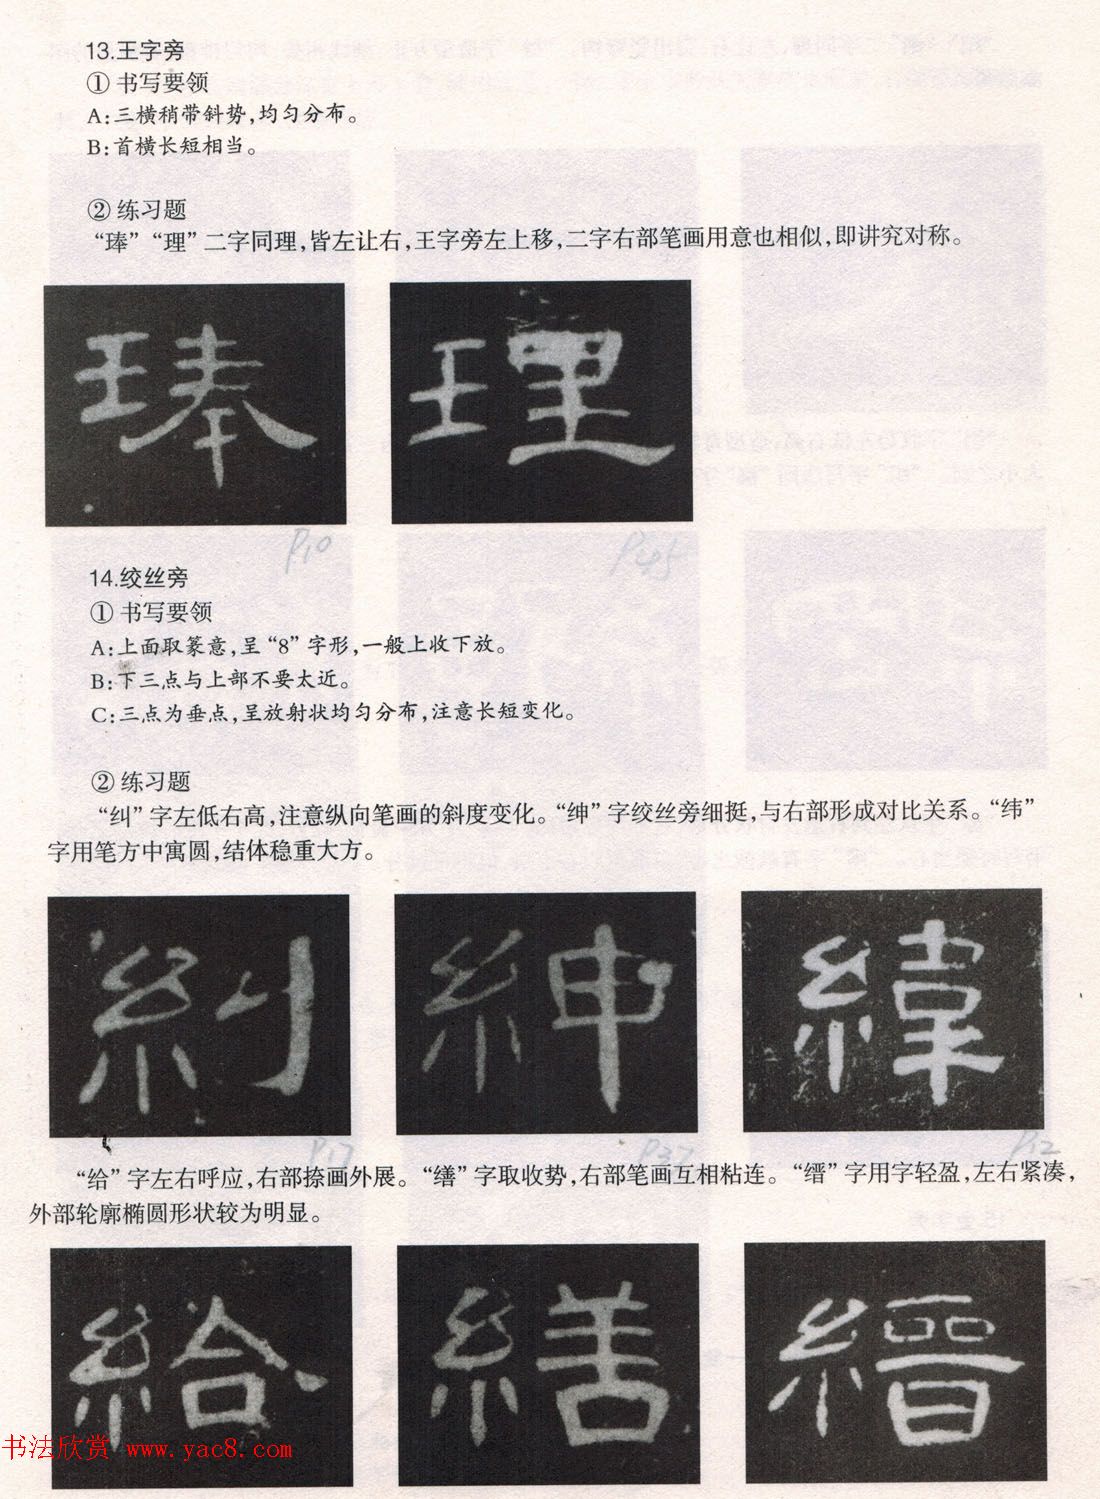 13.王字旁
① 书写要领
A:三横稍带斜势,均匀分布。
B:首横长短相当。
② 练习题
“琫”“理”二字同理,皆左让右,王字旁左上移,二字右部笔画用意也相似,即讲究对称。
琫 理
P10 P45
14.绞丝旁
① 书写要领
A:上面取篆意,呈“8”字形,一般上收下放。
B:下三点与上部不要太近。
C:三点为垂点,呈放射状均匀分布,注意长短变化。
② 练习题
“纠”字左低右高,注意纵向笔画的斜度变化。“绅”字绞丝旁细挺,与右部形成对比关系。“纬”
字用笔方中寓圆,结体稳重大方。
糾 紳 緯
P17 P37 P12
“给”字左右呼应,右部捺画外展。“缮”字取收势,右部笔画互相粘连。“缙”字用字轻盈,左右紧凑,
外部轮廓椭圆形状较为明显。
給 繕 縉
书法欣赏 www.yac8.com